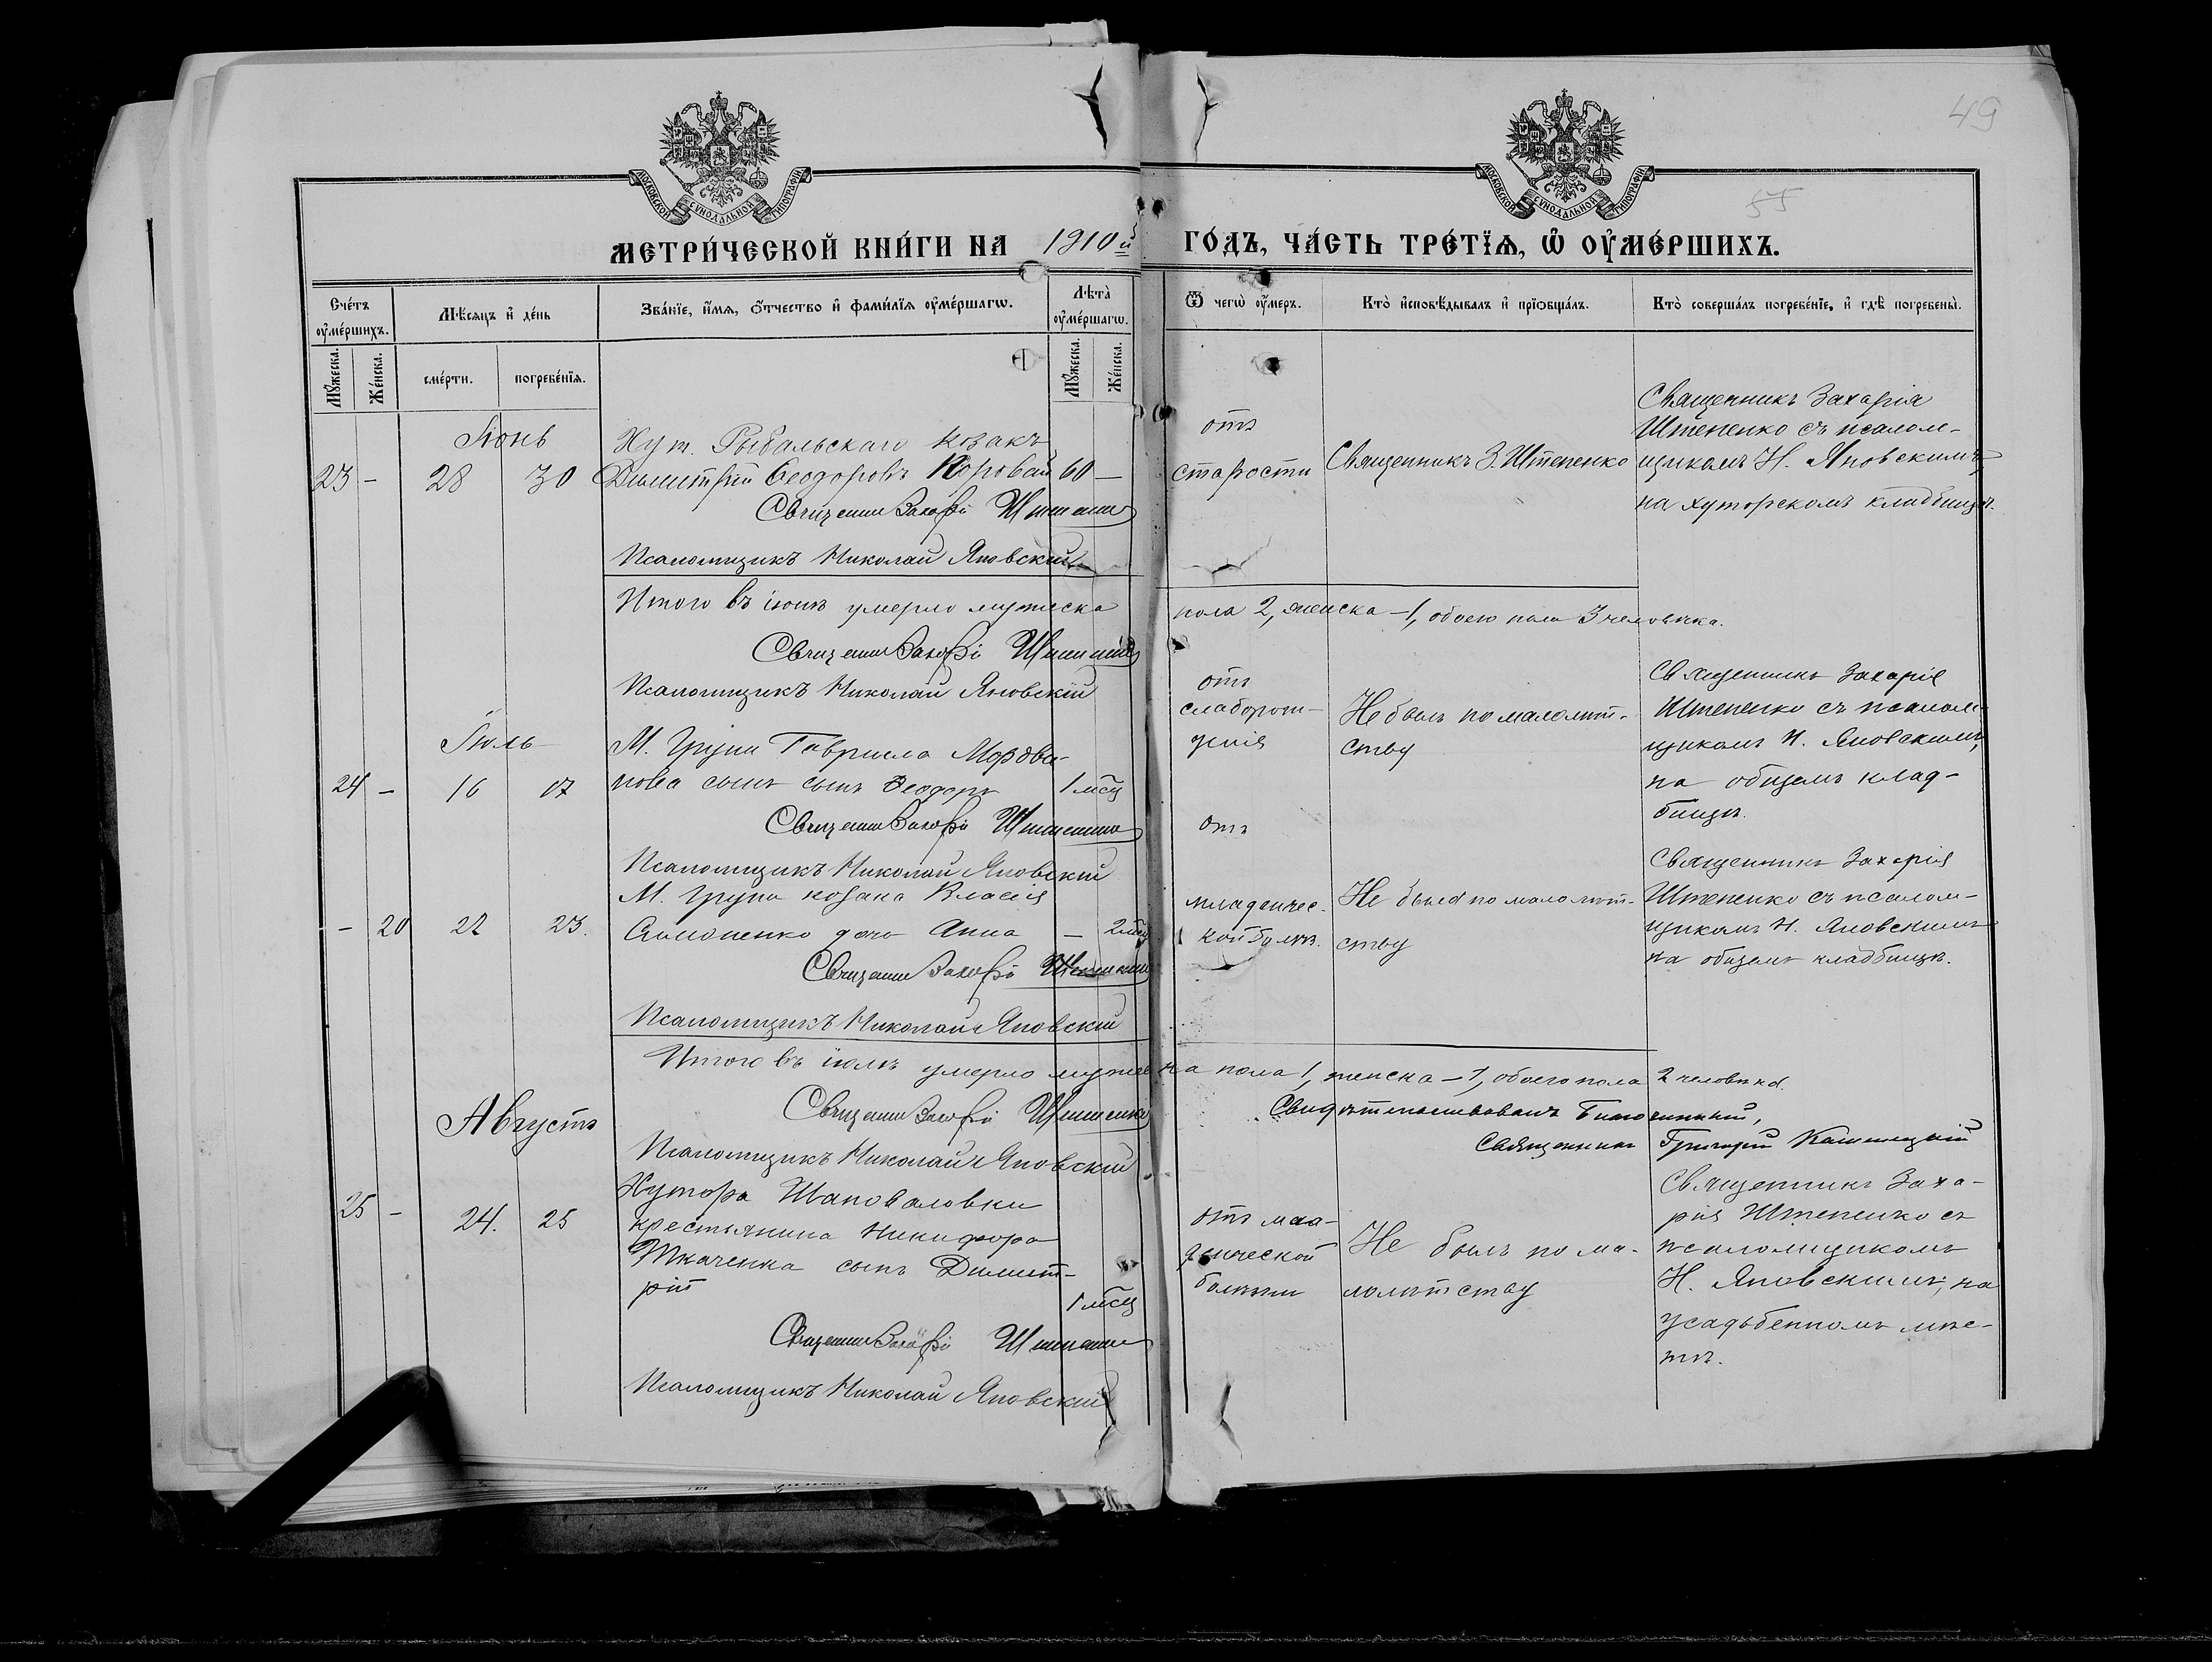 49
55
МОСКОВСКОЙ СѴНОДАЛЬНОЙ ТИПОГРАФІИ
МОСКОВСКОЙ СѴНОДАЛЬНОЙ ТИПОГРАФІИ
МЕТРИ́ЧЕСКОЙ КНИ́ГИ НА 1910й ГО́ДЪ, ЧА́СТЬ ТРЕ́ТЇѦ, Ѡ҆ ОУ҆МЕ́РШИХЪ.
Сче́тъ оу҆ме́ршихъ.
Мѣ́сяцъ и҆ де́нь
Зва́нїе, и҆́мѧ, ѻ҆́тчество и҆ фами́лїѧ оу҆ме́ршагѡ.
Лѣта̀ оу҆ме́ршагѡ.
Ѿ чегѡ̀ оу҆́меръ.
Кто̀ и҆сповѣ́дывалъ и҆ прїѻбща́лъ.
Кто̀ соверша́лъ погребе́нїе, и҆ гдѣ̀ погребены̀.
Мꙋ́жеска.
Же́нска.
сме́рти.
погребе́нїѧ.
Мꙋ́жеска.
Же́нска.
Іюнь
23 - 28 30
Хут. Рыбальскаго козакъ
Димитрій Ѳеодоровъ Коровай 60 —
Священникъ Захарій Штепенко
Псаломщикъ Николай Яновскій
отъ
старости
Священникъ З. Штепенко
Священникъ Захарія
Штепенко съ псалом-
щикомъ Н. Яновскимъ,
на хуторскомъ кладбищѣ.
Итого въ іюнѣ умерло мужеска пола 2, женска -1, обоего пола 3 человѣка.
Священникъ Захарій Штепенко
Псаломщикъ Николай Яновскій
Іюль
24 - 16 17
М. Груни Гавріила Мордви-
нова сынъ сынъ Ѳеодоръ 1 мѣсц
Священникъ Захарій Штепенко
Псаломщикъ Николай Яновскій
отъ
слаборож-
денія
Не былъ по малолѣт-
ству
Священникъ Захарія
Штепенко съ псалом-
щикомъ Н. Яновскимъ,
на общемъ клад-
бищѣ.
- 20 22 23.
М. Груни козака Власія
Симоненко дочь Анна — 2 мсц
Священникъ Захарій Штепенко
Псаломщикъ Николай Яновскій
отъ
младенчес-
кой болѣз.
Не была по малолѣт-
ству
Священникъ Захарія
Штепенко съ псалом-
щикомъ Н. Яновскимъ
на общемъ кладбищѣ.
Итого въ іюлѣ умерло мужеска пола 1, женска -1, обоего пола 2 человѣка.
Священникъ Захарій Штепенко
Псаломщикъ Николай Яновскій
Свидѣтельствовалъ Благочинный,
Священникъ Григорій
Августъ
25 - 24. 25
Хутора Шаповаловки
крестьянина Никифора
Ткаченка сынъ Димит-
рій 1 мѣсц
Священникъ Захарій Штепенко
Псаломщикъ Николай Яновскій
отъ мла-
денческой
болѣзни
Не былъ по ма-
лолѣтству
Священникъ Заха-
рія Штепенко съ
псаломщикомъ
Н. Яновскимъ, на
усадьбенномъ мѣс-
тѣ.